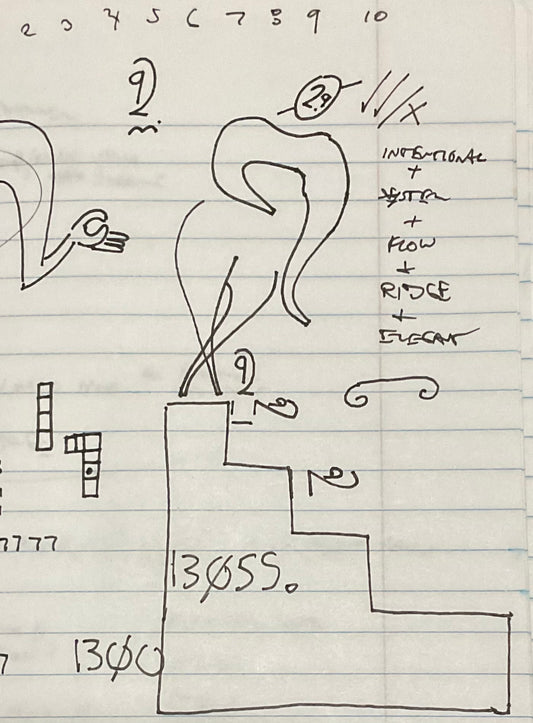 2 3 4 5 6 7 8 9 10
9
2.9
X
INTENTIONAL
+
SYSTEM
+
FLOW
+
RIDGE
+
ELEGANT
7777
13055.
7 1300